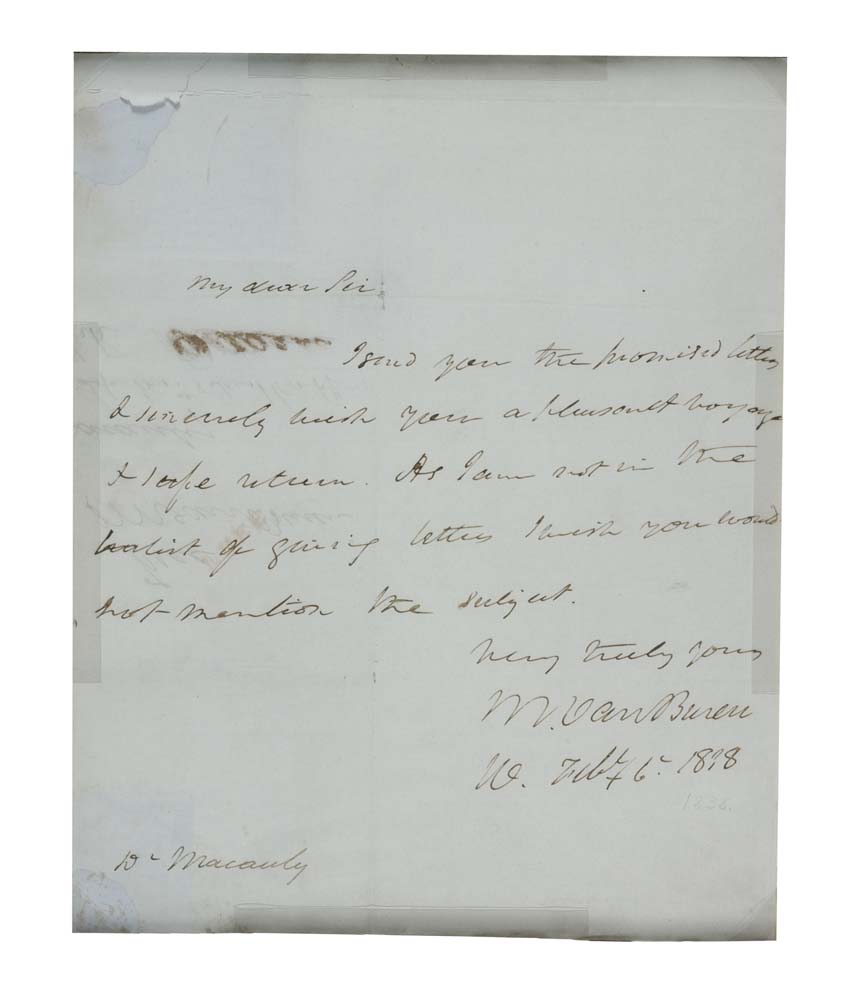 My dear Sir
I send you the promised letters
& sincerely wish you a pleasant voyage
& safe return. As I am not in the
habit of giving letters I wish you would
not mention the subject.
Very truly yours
M. Van Buren
W. Feby 6th 1838
1838.
Dr Macauly